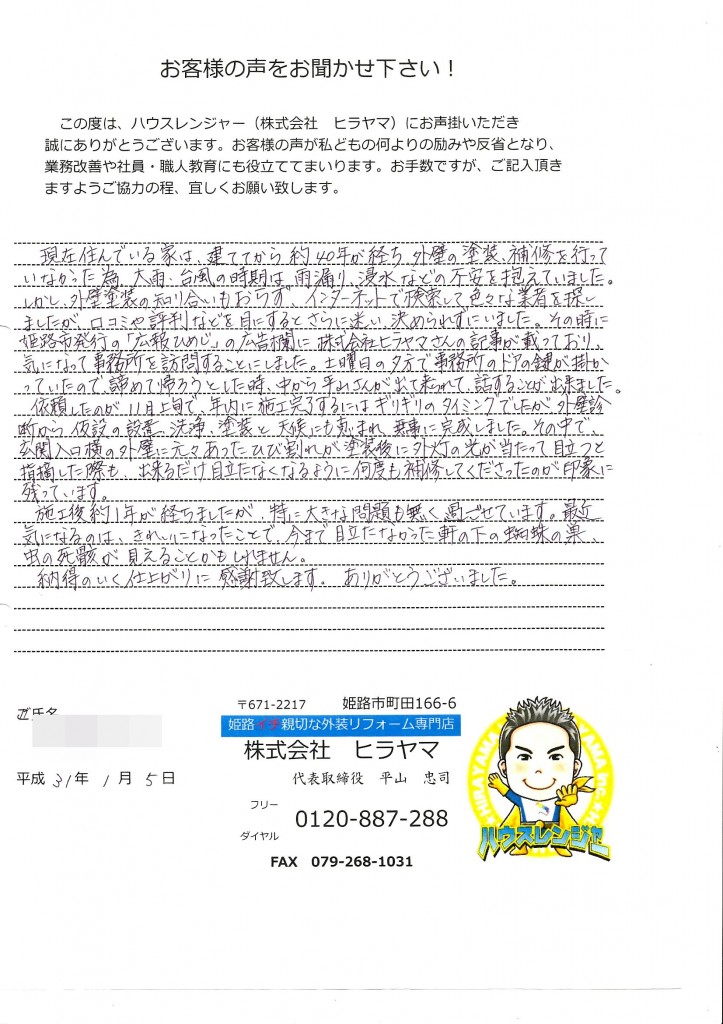 お客様の声をお聞かせ下さい！
この度は、ハウスレンジャー（株式会社　ヒラヤマ）にお声掛いただき
誠にありがとうございます。お客様の声が私どもの何よりの励みや反省となり、
業務改善や社員・職人教育にも役立ててまいります。お手数ですが、ご記入頂き
ますようご協力の程、宜しくお願い致します。
現在住んでいる家は、建ててから約40年が経ち、外壁の塗装、補修を行って
いなかった為、大雨・台風の時期は、雨漏り、浸水などの不安を抱えていました。
しかし、外壁塗装の知り合いもおらず、インターネットで検索して色々な業者を探し
ましたが、口コミや評判などを目にするとさらに迷い、決められずにいました。その時に
姫路市発行の「広報ひめじ」の広告欄に、株式会社ヒラヤマさんの記事が載っており、
気になって事務所を訪問することにしました。土曜日の夕方で事務所のドアの鍵が掛か
っていたので、諦めて帰ろうとした時、中から平山さんが出て来られて、話することが出来ました。
依頼したのが、11月上旬で、年内に施工完了するにはギリギリのタイミングでしたが、外壁診
断から仮設の設置、洗浄、塗装と天候にも恵まれ、無事に完成しました。その中で、
玄関入口横の外壁に元々あったひび割れが塗装後に外灯の光が当たって目立つと
指摘した際も、出来るだけ目立たなくなるように何度も補修してくださったのが印象に
残っています。
施工後約1年が経ちましたが、特に大きな問題も無く過ごせています。最近
気になるのは、きれいになったことで、今まで目立たなかった軒の下の蜘蛛の巣、
虫の死骸が見えることかもしれません。
納得のいく仕上がりに感謝致します。ありがとうございました。
ご氏名
平成 31年 1月 5日
〒671-2217　姫路市町田166-6
姫路イチ親切な外装リフォーム専門店
株式会社　ヒラヤマ
代表取締役　平山　忠司
フリー
ダイヤル
0120-887-288
FAX　079-268-1031
HIRAYAMA
ハウスレンジャー